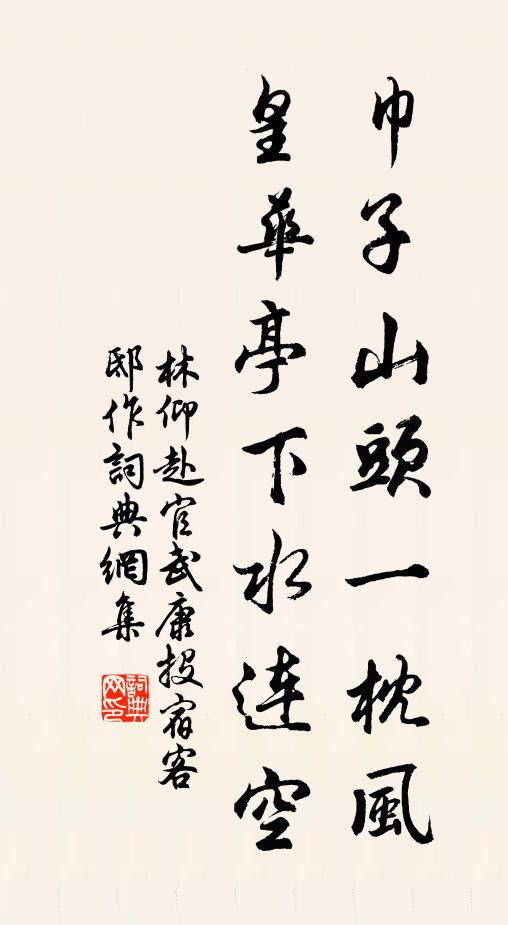 巾子山頭一枕風
皇華亭下水連空
林仰赴官武康投宿客
邸作詞典網集
詞典
网印